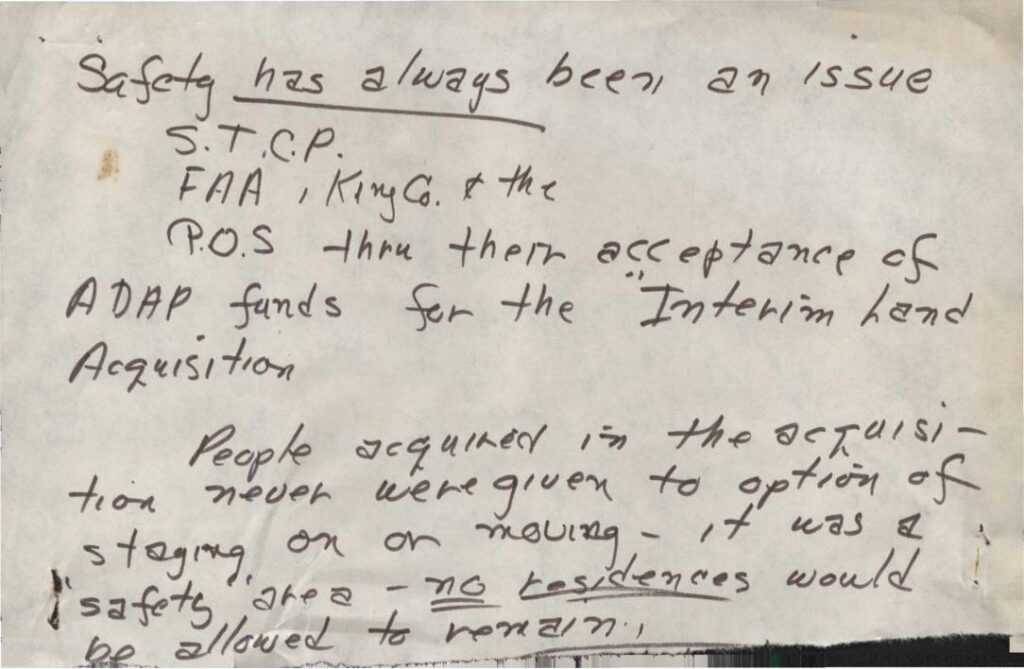 Safety has always been an issue
S.T.C.P.
FAA, King Co. & the
P.O.S thru their acceptance of
ADAP funds for the "Interim Land
Acquisition
People acquired in the acquisi-
tion never were given to option of
staying on or moving - it was a
"safety" area - no residences would
be allowed to remain.